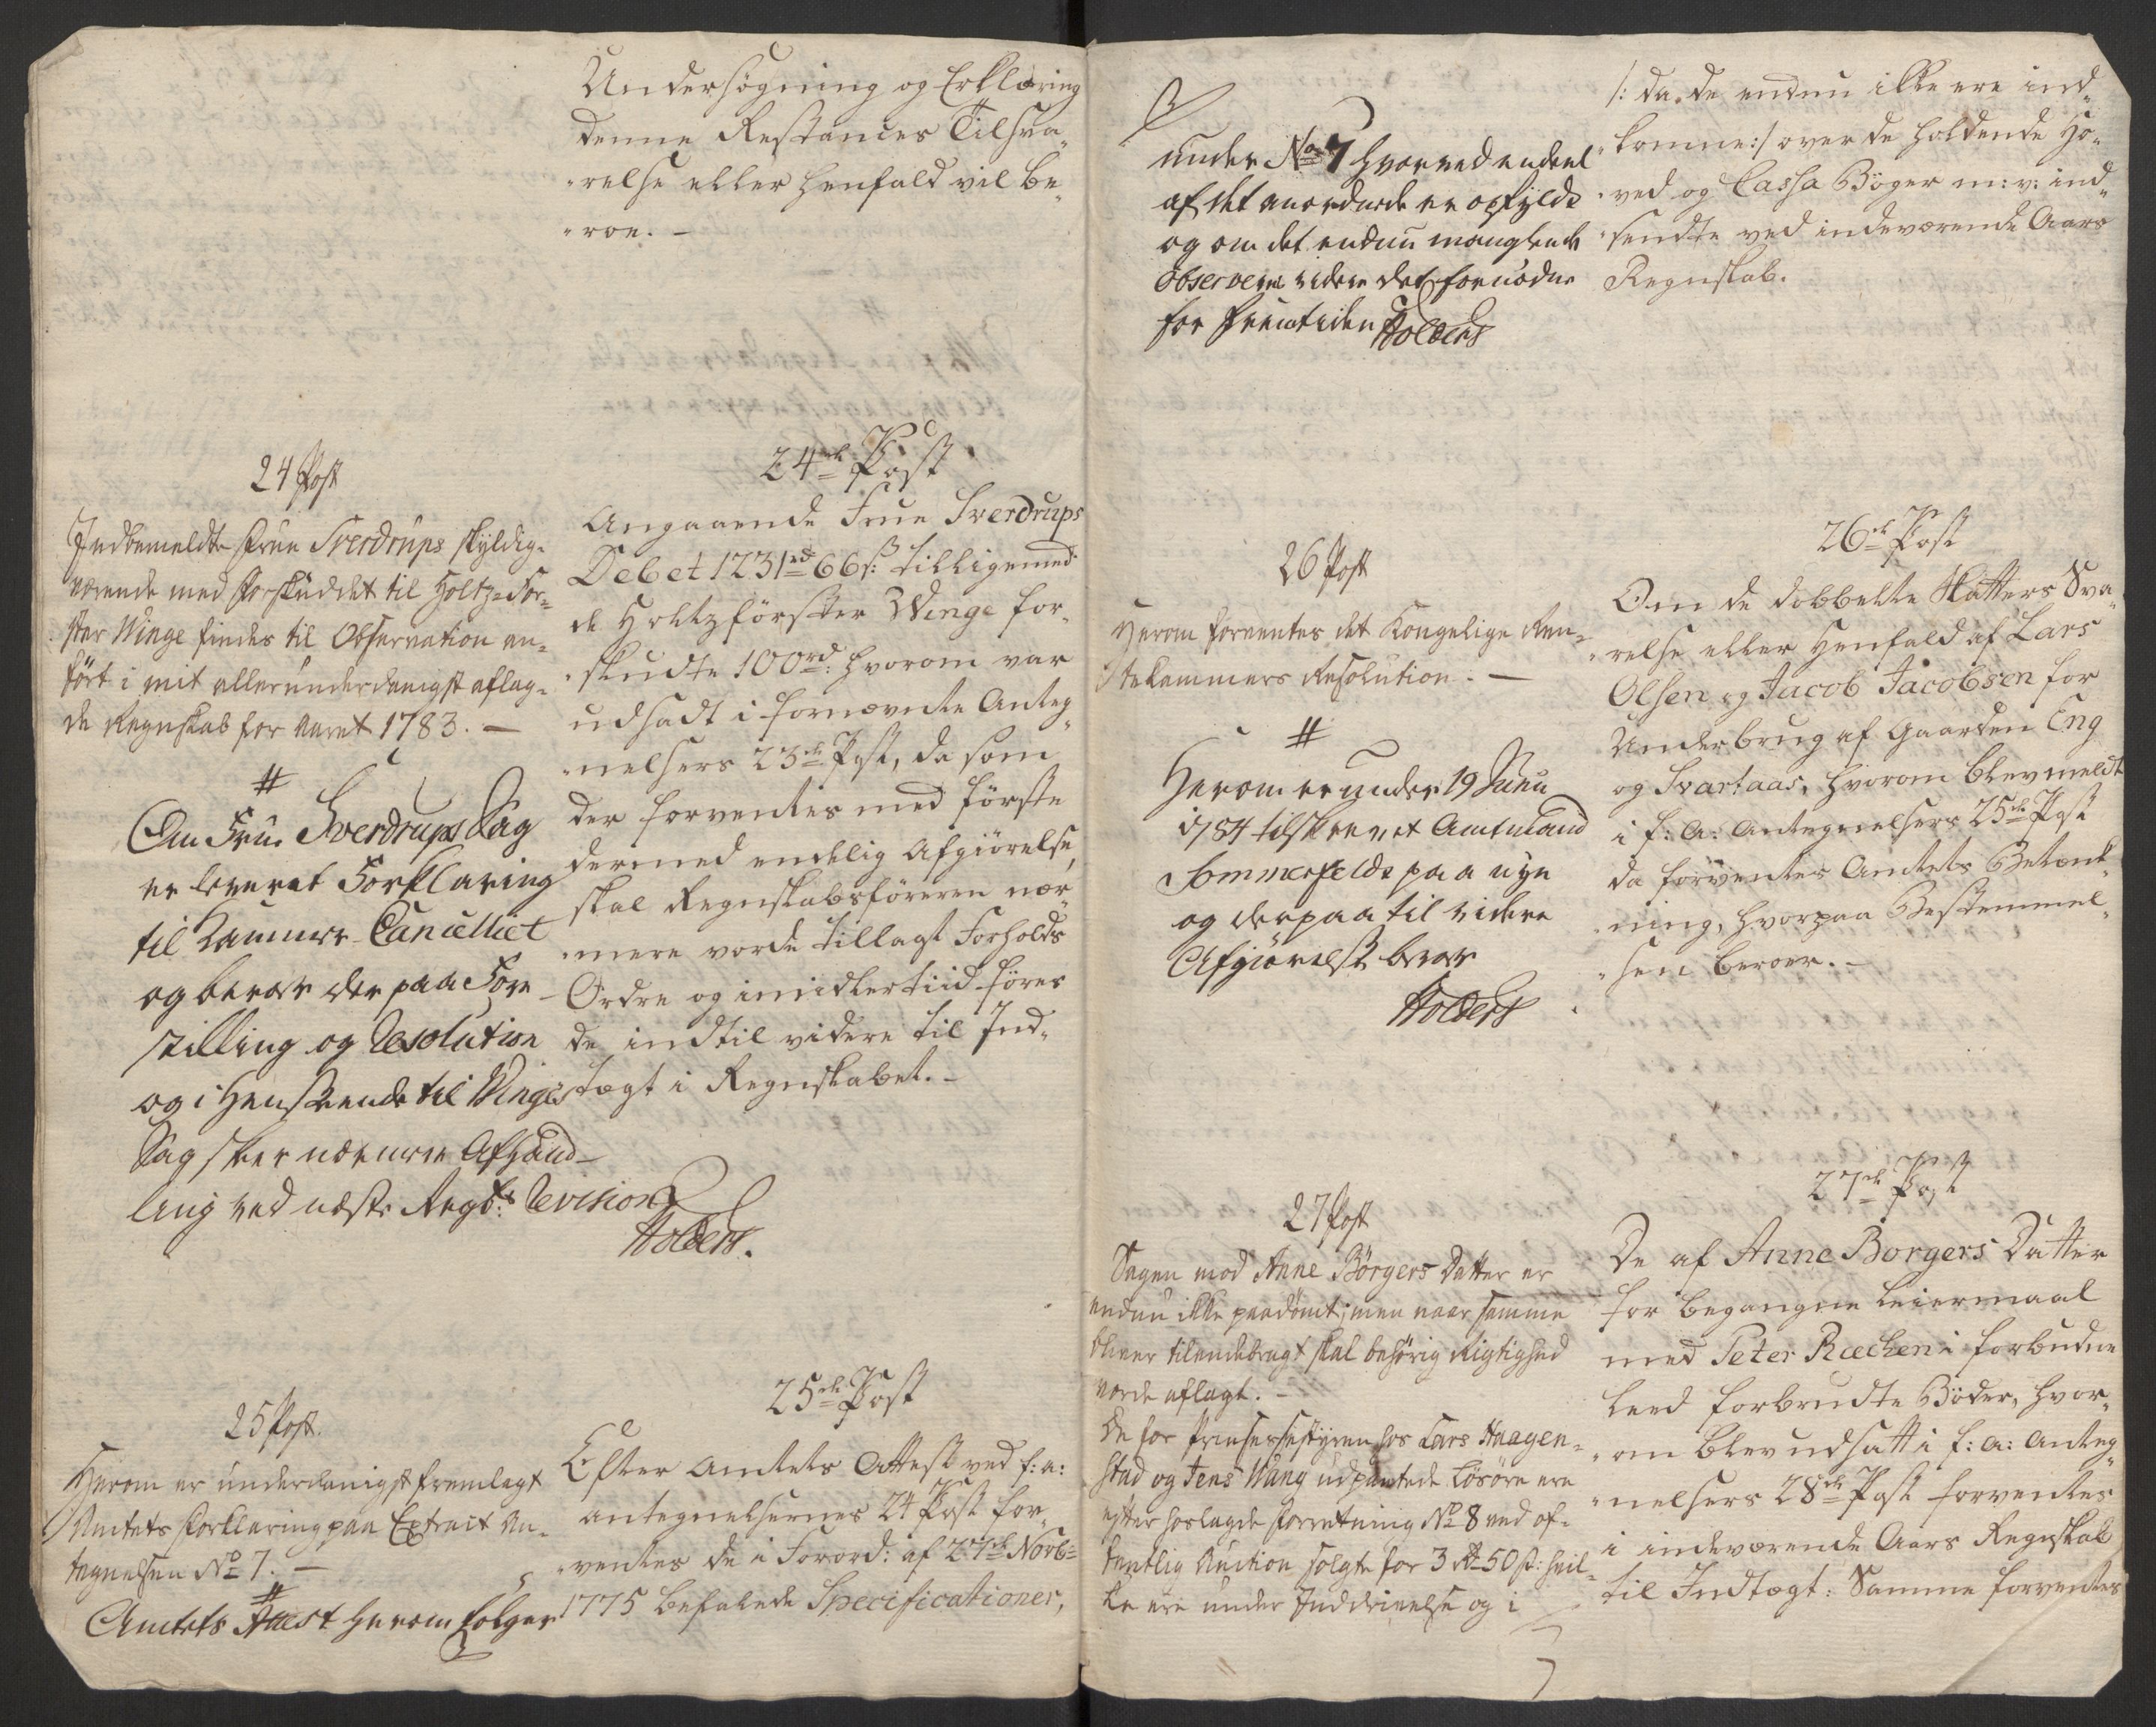 Undersögning og Erklæring
denne Restances Tilsva„
„relse eller henfald vil be„
„roe. –
24 Post
Indbemeldte Frue Sverdrups skyldig-
værende med Forskuddet til Holtz-För-
ster Winge findes til Observation an-
fört i mit allerunderdanigst aflag-
de Regnskab for Aaret 1783. –
#
Om Frue Sverdrups Sag
er leveret Forklaring
til Kammer-Cancelliet
og beroer der paa Fore
stilling og Resolution
og i Henseende til Winges
Sag skeer nærmere Afhand-
ling ved næste Regsk:s Revision
Holbers.
25 Post.
Herom er underdanigst fremlagt
Amtets Forklaring paa Extract An-
tegnelsen No 7. –
#
Amtets Attest herom følger
24de Post
Angaaende Frue Sverdrups
Debet 1231rd 66s: tilligemed
de Holtzförster Winge for„
„skudte 100rd: hvorom var
udsadt i fornævnte Anteg„
„nelsers 23de Post, da som
der forventes med förste
dermed endelig Afgiörelse,
skal Regnskabsföreren nær„
„mere vorde tillagt Forholds
Ordre og imidlertiid föres
de indtil videre til Ind„
tægt i Regnskabet. –
25de Post
Efter Amtets Attest ved f: a:
Antegnelsernes 24 Post for„
„ventes de i Forord: af 27de Novb:
1775 befalede Specificationer,
under No 7 hvorved endeel
af det anordnede er opfyldt
og om det endnu manglende
observeres videre det fornödne
for Fremtiden Holbers
26 Post
Herom forventes det Kongelige Ren-
tekammers Resolution. –
#
Herom er under 19 Junii
1784 tilskrevet Amtmand
Sommerfeldt paa nye
og derpaa til videre
Afgiörelse beroer
Holbers
27 Post
Sagen mod Anne Börgers Datter er
endnu ikke paadömt; men naar samme
bliver tilendebragt skal behörig Rigtighed
vorde aflagt. –
De for Prinsessestyren hos Lars Haagen-
stad og Jens Wang udpantede Lösöre ere
efter hoslagde Forretning No 8 ved of-
fentlig Auction solgte for 3 rd 50 s: hvil-
ke ere under Inddrivelse og i
/: da de endnu ikke ere ind„
„komne :/ over de holdende Ho„
„ved og Cassa Böger m: v: ind„
„sendte ved indeværende Aars
Regnskab.
26de Post
Om de dobbelte Skatters Sva„
„relse eller Henfald af Lars
Olsen og Jacob Jacobsen for
Underbrug af Gaarden Eng
og Svartaas, hvorom blev meldt
i f: A: Antegnelsers 25de Post
da forventes Amtets Betænk„
„ning, hvorpaa Bestemmel„
„sen beroer. –
27de Post
De af Anne Borgers Datter
for begangne Leiermaal
med Peter Ræchen i forbudne
Leed forbrudte Böder, hvor„
„om blev udsatt i f: a: Anteg„
„nelsers 28de Post forventes
i indeværende Aars Regnskab
til Indtægt: Samme forventes